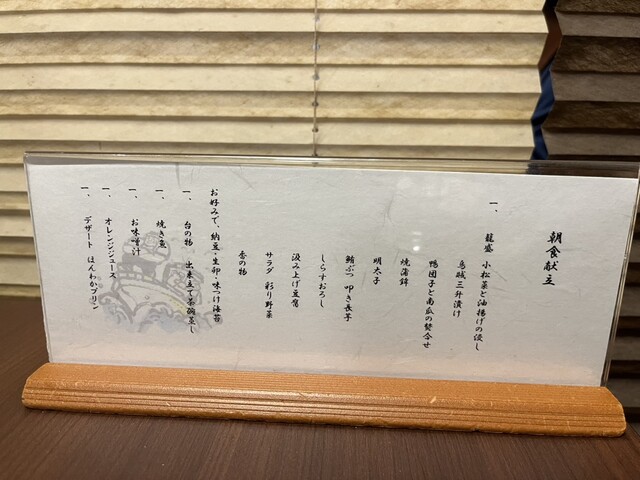 朝食献立
一、 籠盛 小松菜と油揚げの浸し
烏賊三升漬け
鴨団子と南瓜の焚合せ
焼蒲鉾
明太子
鮪ぶつ 叩き長芋
しらすおろし
汲み上げ豆腐
サラダ 彩り野菜
香の物
お好みで、納豆・生卵・味つけ海苔
一、 台の物 出来立て茶碗蒸し
一、 焼き魚
一、 お味噌汁
一、 オレンジジュース
一、 デザート ほんわかプリン